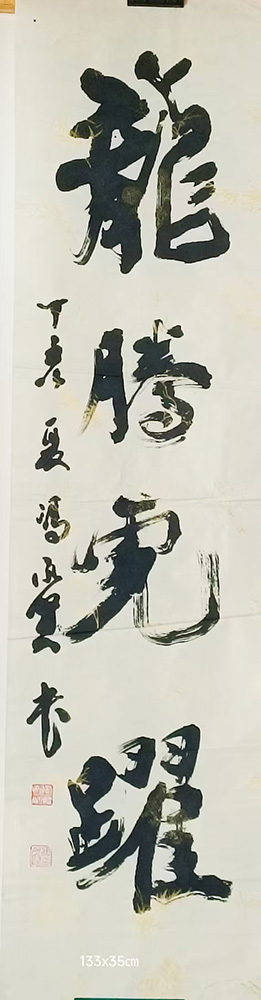 龍騰虎躍
丁亥夏馮寶書
133x35cm